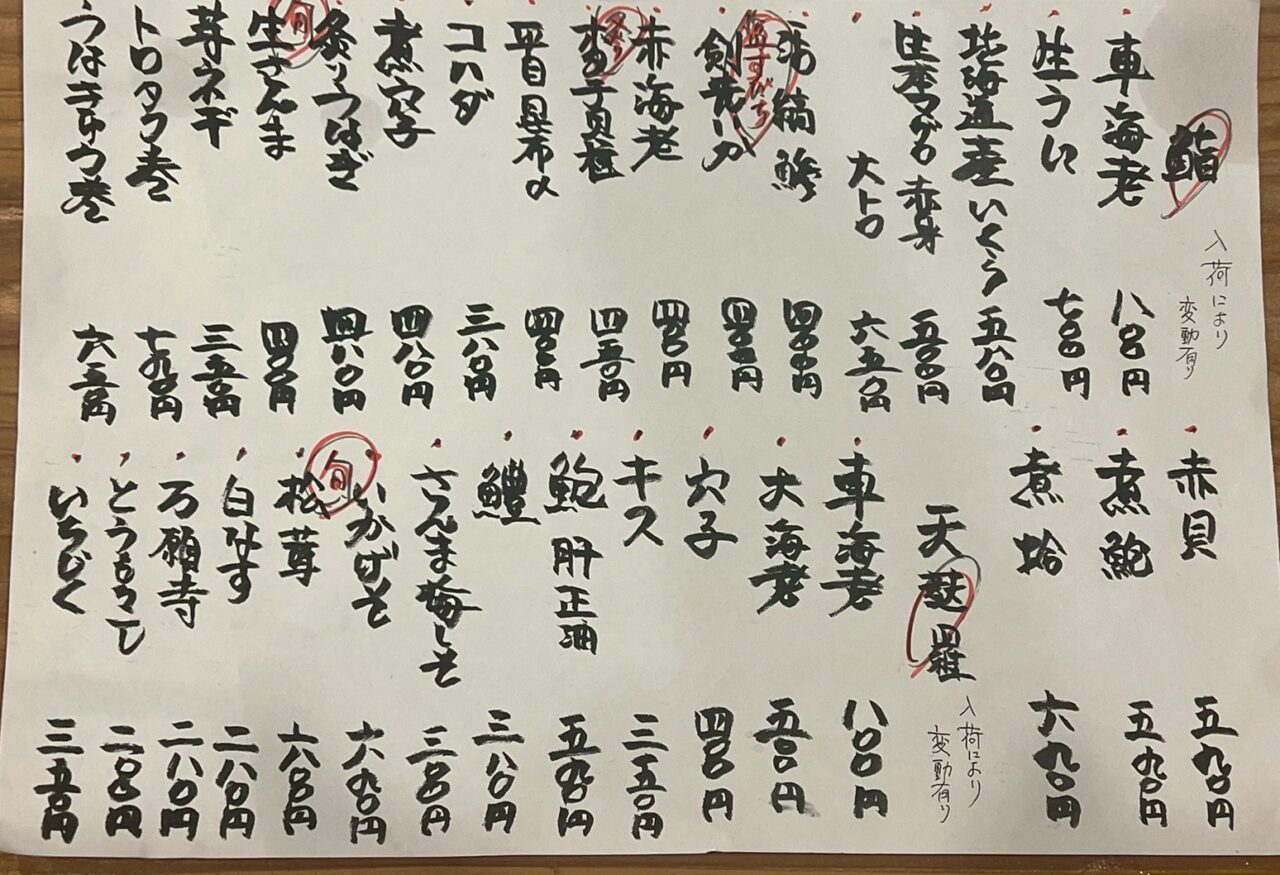 鮨
入荷により
変動有り
車海老 八〇〇円
生うに 七〇〇円
北海道産いくら 五八〇円
生本マグロ 赤身 五〇〇円
大トロ 六五〇円
活縞鯵 四〇〇円
塩すだち
剣先イカ 四〇〇円
赤海老 四〇〇円
炙り
貝柱 四五〇円
平目昆布〆 四〇〇円
コハダ 三八〇円
煮穴子 四八〇円
炙りうなぎ 四八〇円
旬
生さんま 四〇〇円
芽ネギ 三五〇円
トロタク巻 七九〇円
うなきゅう巻 六五〇円
赤貝 五九〇円
煮鮑 五九〇円
煮蛤 六九〇円
天麩羅
入荷により
変動有り
車海老 八〇〇円
大海老 五〇〇円
穴子 四〇〇円
キス 三五〇円
鮑 肝正油 五九〇円
鱧 三八〇円
さんま梅しそ 三〇〇円
いかげそ 六九〇円
旬
松茸 六八〇円
白なす 二八〇円
万願寺 二八〇円
とうもろこし 二〇〇円
いちじく 三五〇円